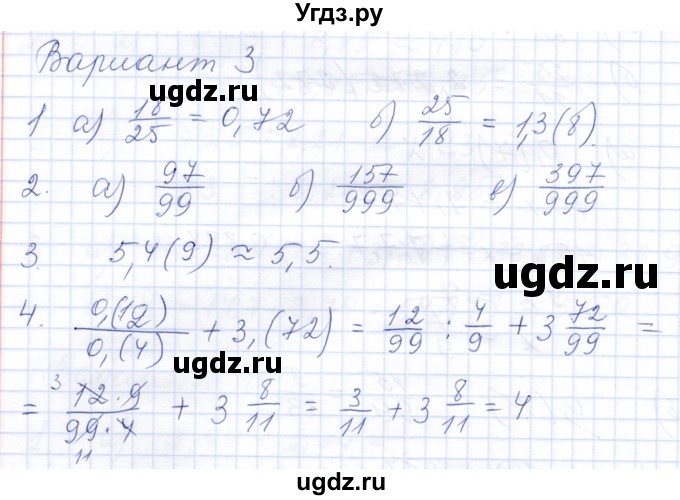 Угдз.ру
Вариант 3
ugdz.ru
1 а) 18/25 = 0,72 б) 25/18 = 1,3(8).
2. а) 97/99 б) 157/999 в) 397/999
3. 5,4(9) ≈ 5,5.
ugdz.ru
4. 0,(12)/0,(4) + 3,(72) = 12/99 : 4/9 + 3 72/99 =
ugdz.ru
= 12·9/99·4 + 3 8/11 = 3/11 + 3 8/11 = 4
3
11
ugdz.ru
ugdz.ru